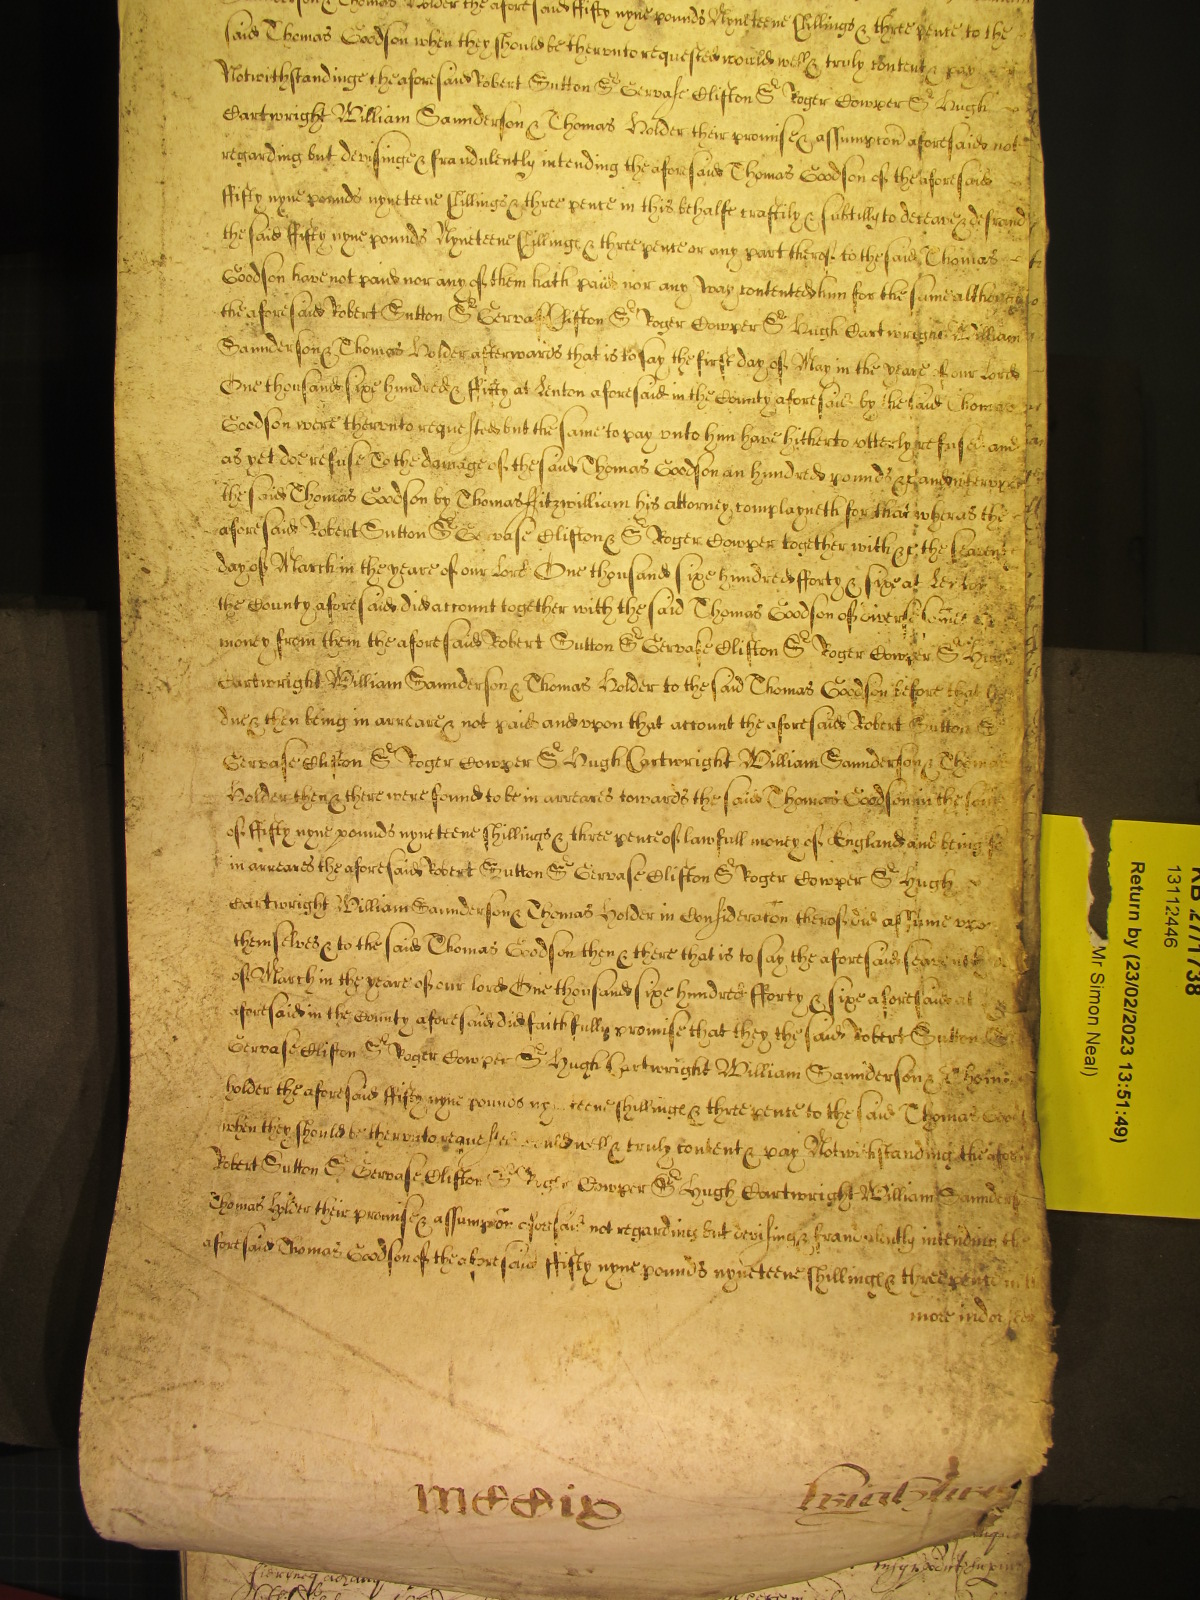 & Thomas Holder the aforesaid ffifty nyne pounds Nyneteene shillings & three pence to the
said Thomas Goodson when they should be therunto requested would well & truly content & pay
Notwithstandinge the aforesaid Robert Sutton Sr Gervase Clifton Sr Roger Cowper Sr Hugh
Cartwright William Saunderson & Thomas Holder their promise & assumpcon aforesaid not
regarding but devisinge & fraudulently intending the aforesaid Thomas Goodson of the aforesaid
ffifty nyne pounds nyneteene shillings & three pence in this behalfe craftily & subtilly to deceave & defraud
the said ffifty nyne pounds Nyneteene shillings & three pence or any part therof to the said Thomas
Goodson have not paid nor any of them hath paid nor any way contented him for the same although
the aforesaid Robert Sutton Sr Gervase Clifton Sr Roger Cowper Sr Hugh Cartwright William
Saunderson & Thomas Holder afterwards that is to say the first day of May in the yeare of our Lord
One thousand sixe hundred & ffifty at Lenton aforesaid in the County aforesaid by the said Thomas
Goodson were therunto requested but the same to pay unto him have hitherto utterly refused and
as yet doe refuse To the damage of the said Thomas Goodson an hundred pounds &
the said Thomas Goodson by Thomas ffitzwilliam his attorney complayneth for that wheras the
aforesaid Robert Sutton Sr Gervase Clifton & Sr Roger Cowper together with &c the seaventh
day of March in the yeare of our Lord One thousand sixe hundred fforty & sixe at Lenton
the County aforesaid did account together with the said Thomas Goodson of divers somes
money from them the aforesaid Robert Sutton Sr Gervase Clifton Sr Roger Cowper Sr Hugh
Cartwright William Saunderson & Thomas Holder to the said Thomas Goodson before that
due & then being in arreare & not paid and upon that account the aforesaid Robert Sutton Sr
Gervase Clifton Sr Roger Cowper Sr Hugh Cartwright William Saunderson & Thomas
Holder then & there were found to be in arreares towards the said Thomas Goodson in the some
of ffifty nyne pounds nyneteene shillings & three pence of lawfull money of England and being so
in arreares the aforesaid Robert Sutton Sr Gervase Clifton Sr Roger Cowper Sr Hugh
Cartwright William Saunderson & Thomas Holder in Consideracon therof did assume upon
themselves & to the said Thomas Goodson then & there that is to say the aforesaid seaventh
of March in the yeare of our lord One thousand sixe hundred fforty & sixe aforesaid at
aforesaid in the County aforesaid did faithfully promise that they the said Robert Sutton Sr
Gervase Clifton Sr Roger Cowper Sr Hugh Cartwright William Saunderson & Thomas
holder the aforesaid ffifty nyne pounds nyneteene shillinges & three pence to the said Thomas Goodson
when they should be therunto requested would well & truly content & pay Notwithstanding the aforesaid
Robert Sutton Sr Gervase Clifton Sr Roger Cowper Sr Hugh Cartwright William Saunderson
Thomas Holder their promise & assumpcon aforesaid not regarding but devising & fraudulently intending the
aforesaid Thomas Goodson of the aforesaid ffifty nyne pounds nyneteene shillinges & three pence in
more indorsed
KB 27/1738
13112446
Return by (23/02/2023 13:51:49)
Mr Simon Neal)